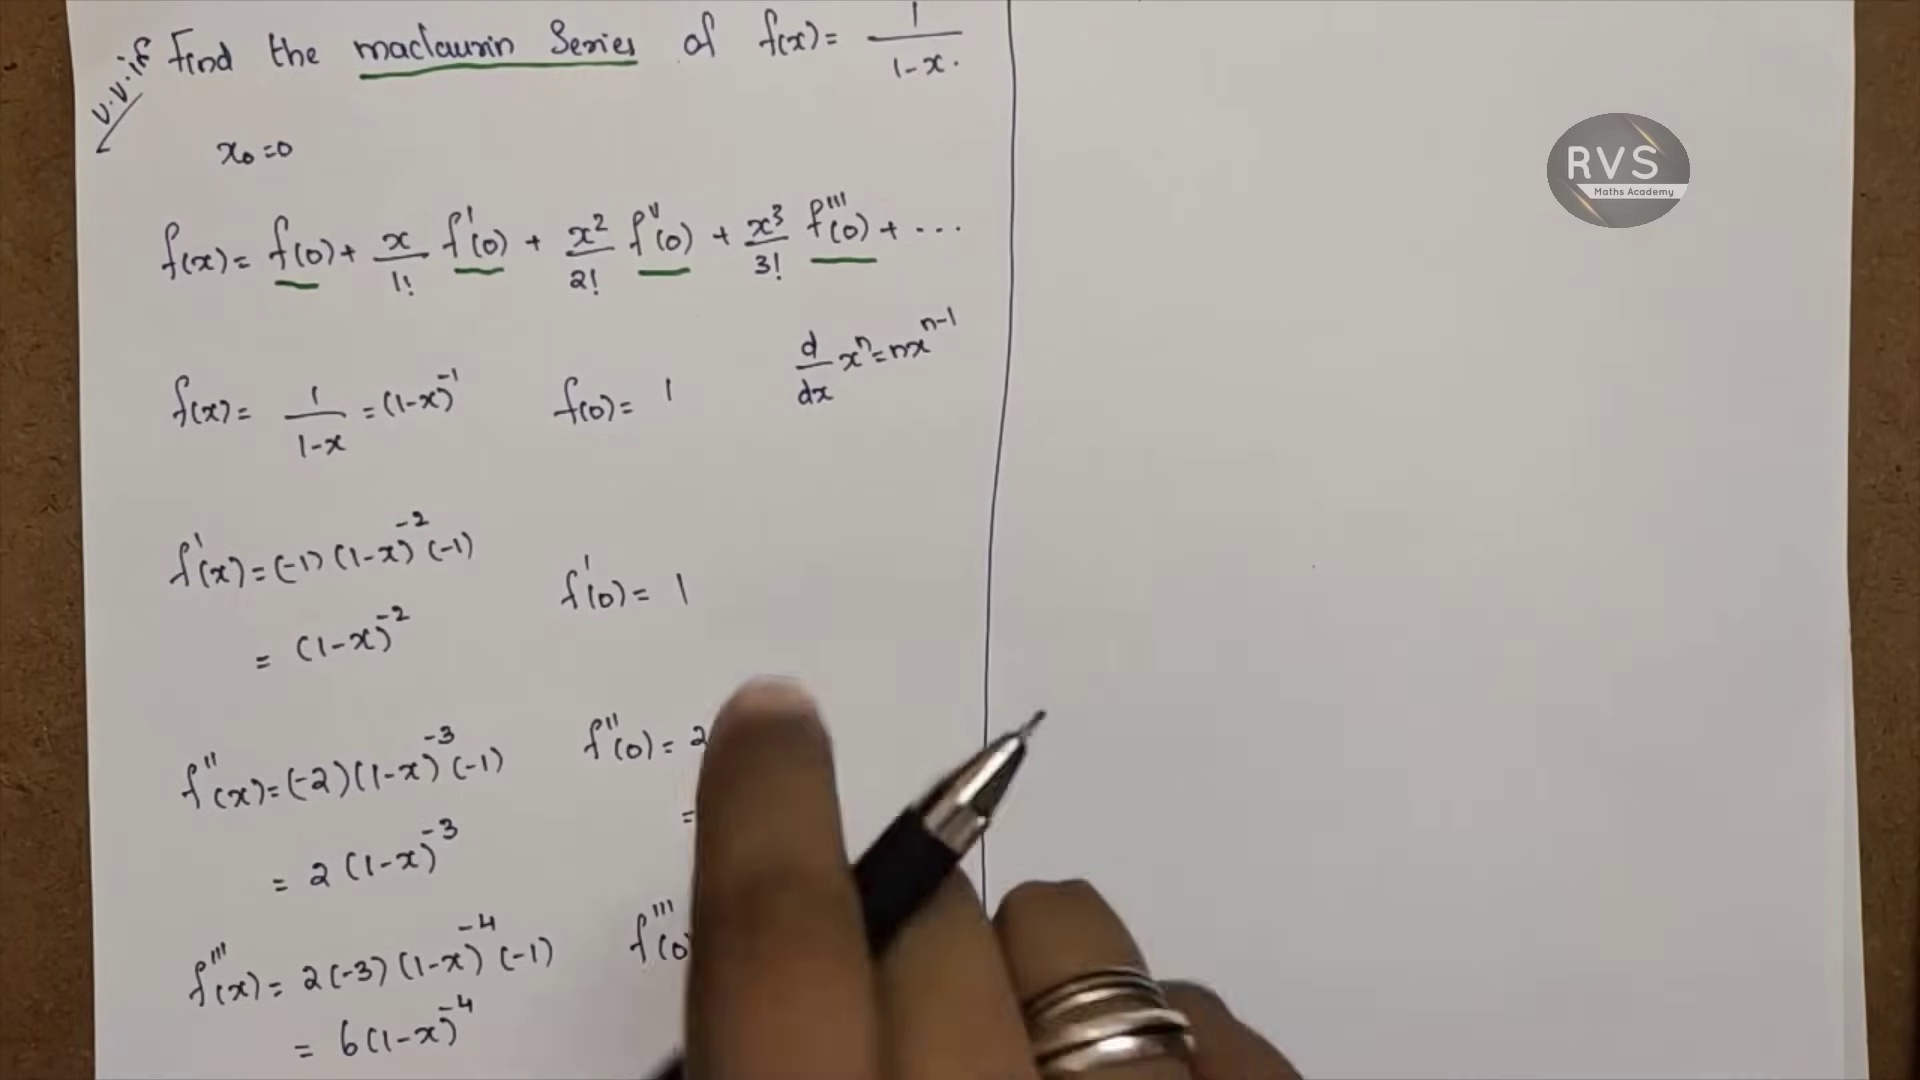 v.v.if Find the maclaurin Series of f(x)= 1/1-x.
x₀=0
f(x)= f(0)+ x/1! f'(0) + x²/2! f''(0) + x³/3! f'''(0) + ...
d/dx xⁿ=nxⁿ⁻¹
f(x)= 1/1-x =(1-x)⁻¹ f(0)= 1
f'(x)=(-1)(1-x)⁻²(-1) f'(0)= 1
= (1-x)⁻²
f''(x)=(-2)(1-x)⁻³(-1) f''(0)= 2
= 2(1-x)⁻³ =
f'''(x)= 2(-3)(1-x)⁻⁴(-1) f'''(0
= 6(1-x)⁻⁴
RVS
Maths Academy